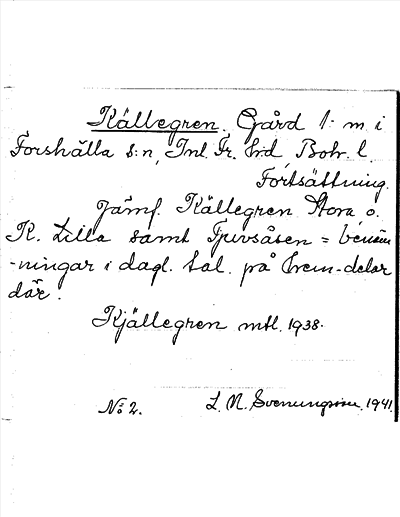 Källegren. Gård 1: m. i
Forshälla s:n, Inl. Fr. Hrd Boh. l.
Fortsättning.
Jämf. Källegren Stora o.
K. Lilla samt Tjuvsåsen = benäm-
-ningar i dagl. tal. på Hem-delar
där.
Kjällegren mtl. 1938.
No: 2. L. N. Svenungsson. 1941.